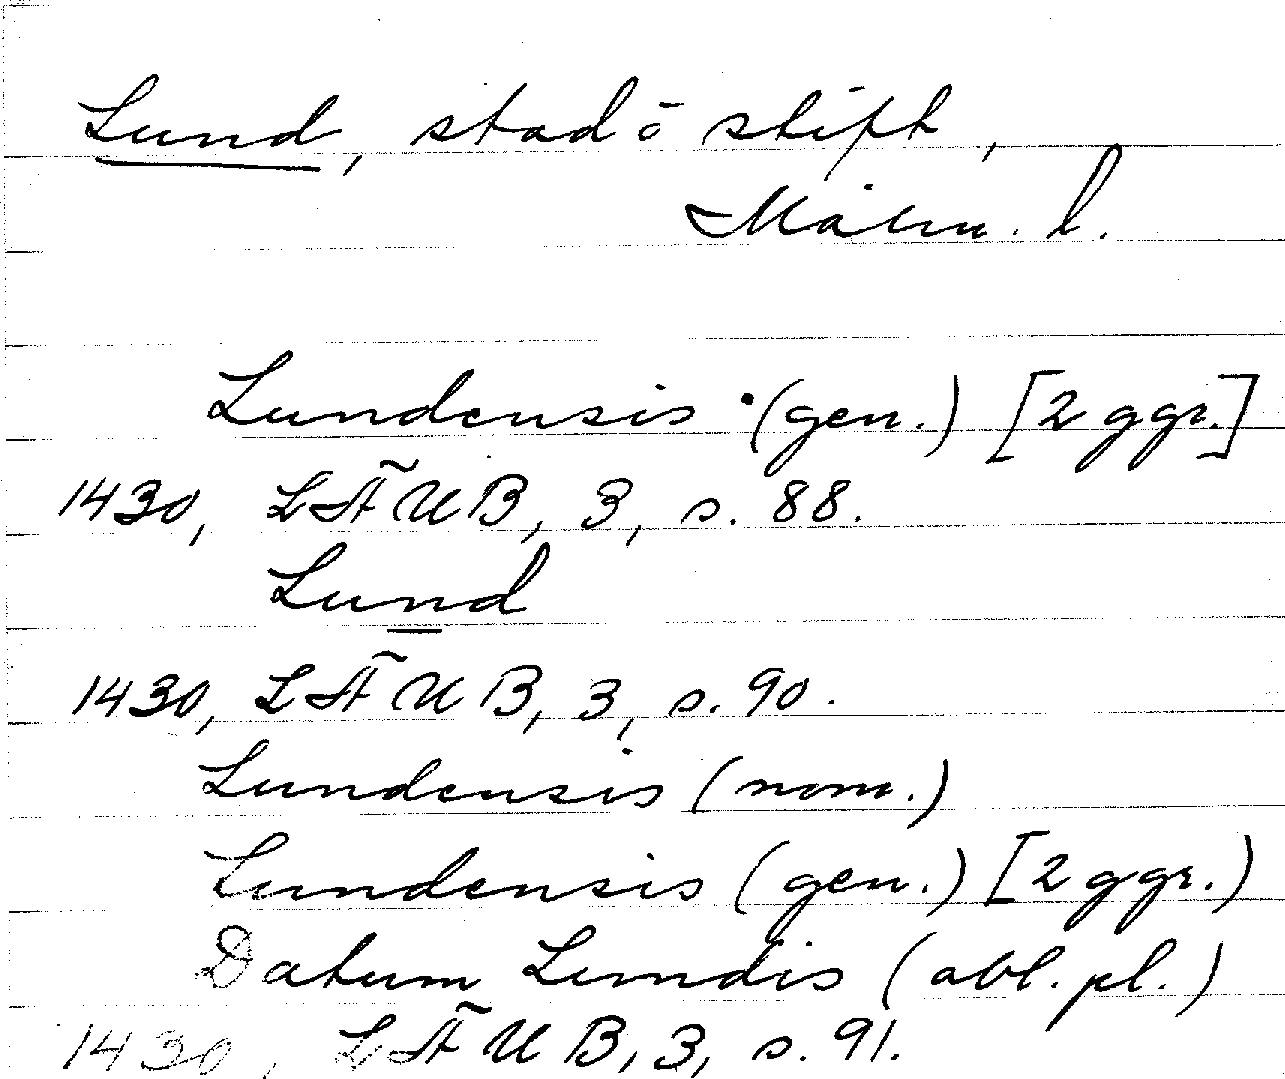 Lund, stad ō stift,
Malm. l.
Lundensis (gen.) [2 ggr.]
1430, LÄUB, 3, s. 88.
Lund
1430, LÄUB, 3, s. 90.
Lundensis (nom.)
Lundensis (gen.) [2 ggr.)
Datum Lundis (abl. pl.)
1430, LÄUB, 3, s. 91.